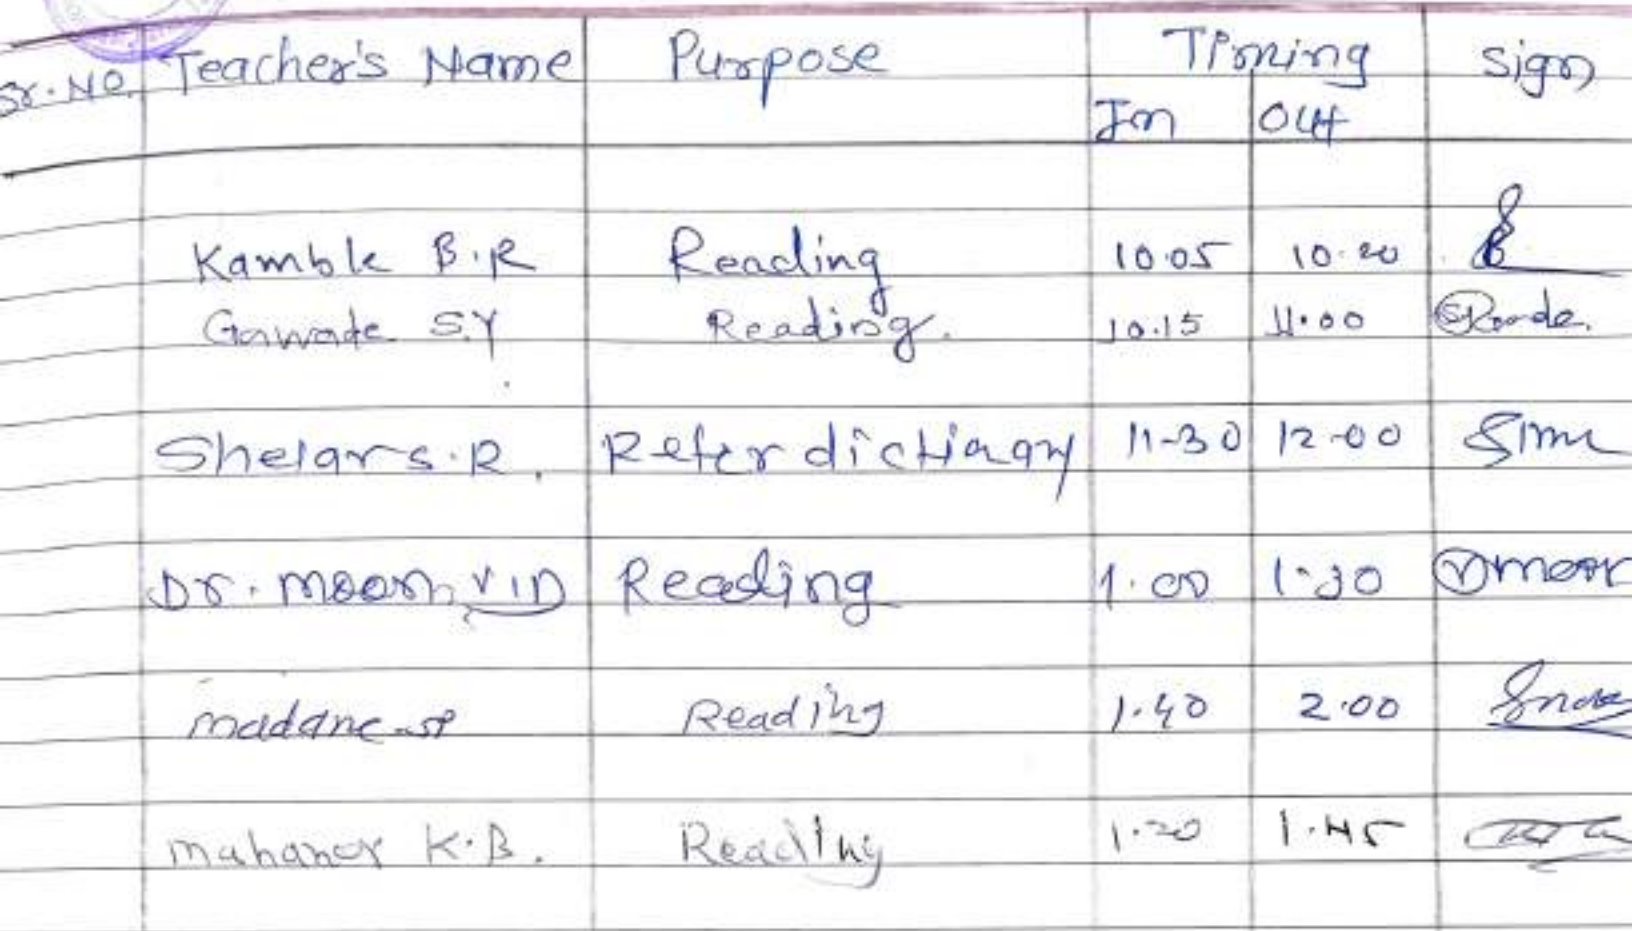 Sr. No. Teacher's Name Purpose Timing Sign
In Out
Kamble B.R Reading 10.05 10.20
Gawade S.Y Reading. 10.15 11.00
Shelar S.R. Refer dictionary 11-30 12-00
Dr. Moon V.D Reading 1.00 1.30
Madane SP Reading 1.40 2.00
Mahanor K.B. Reading 1.20 1.45